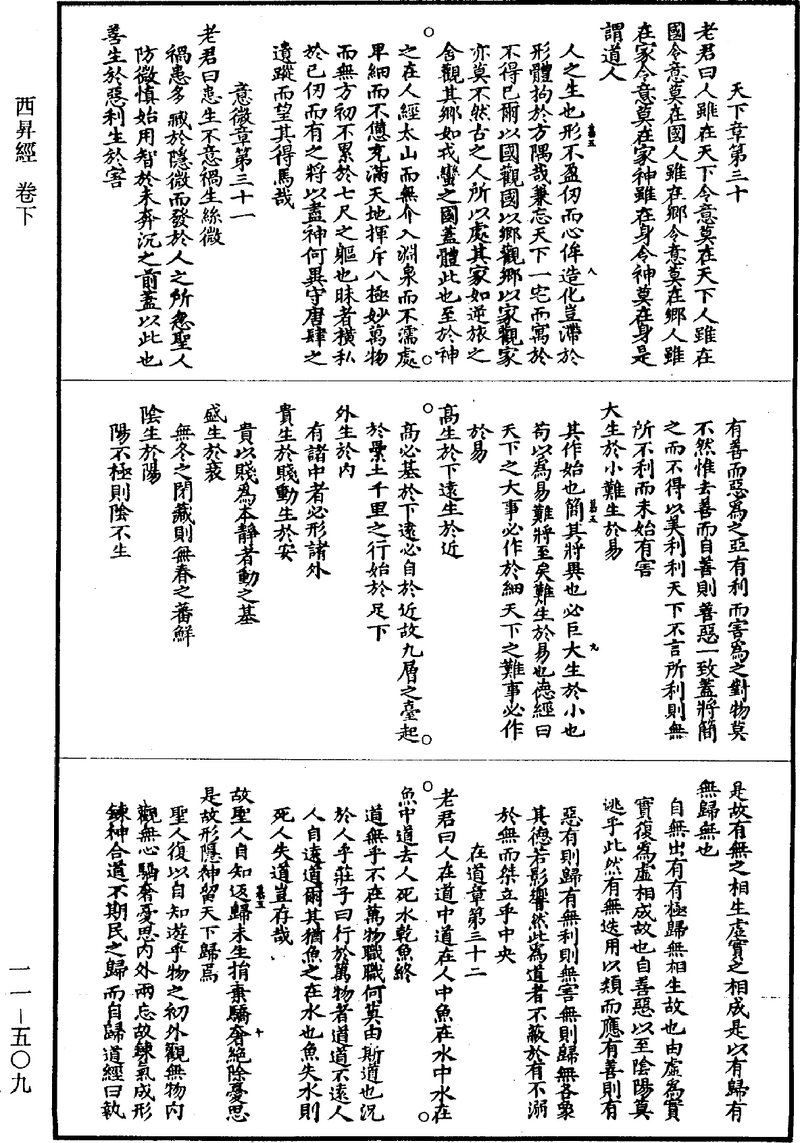 西昇經 卷下
一一－五〇九
天下章第三十
老君曰人雖在天下令意莫在天下人雖在
國令意莫在國人雖在鄉令意莫在鄉人雖
在家令意莫在家神雖在身令神莫在身是
謂道人
人之生也形不盈仞而心侔造化豈滯於
形體拘於方隅哉兼忘天下一宅而寓於
不得已爾以國觀國以鄉觀鄉以家觀家
亦莫不然古之人所以處其家如逆旅之
舍觀其鄉如戎蠻之國蓋體此也至於神
之在人經太山而無介入淵泉而不濡處
卑細而不憊充滿天地揮斥八極妙萬物
而無方初不累於七尺之軀也昧者橫私
於已仞而有之將以盡神何異守唐肆之
遺蹤而望其得馬哉
意微章第三十一
老君曰患生不意禍生絲微
禍患多藏於隱微而發於人之所忽聖人
防微慎始用智於未奔沉之前蓋以此也
善生於惡利生於害
有善而惡為之亞有利而害為之對物莫
不然惟去善而自善則善惡一致蓋將簡
之而不得以美利利天下不言所利則無
所不利而未始有害
大生於小難生於易
其作始也簡其將畢也必巨大生於小也
苟以為易難將至矣難生於易也德經曰
天下之大事必作於細天下之難事必作
於易
高生於下遠生於近
高必基於下遠必自於近故九層之臺起
於累土千里之行始於足下
外生於內
有諸中者必形諸外
貴生於賤動生於安
貴以賤為本靜者動之基
盛生於衰
無冬之閉藏則無春之蕃鮮
陰生於陽
陽不極則陰不生
是故有無之相生虛實之相成是以有歸有
無歸無也
自無出有有極歸無相生故也由虛為實
實復為虛相成故也自善惡以至陰陽莫
逃乎此然有無迭用以類而應有善則有
惡有則歸有無利則無害無則歸無各象
其德若影響然此為道者不蔽於有不溺
於無而桀立乎中央
在道章第三十二
老君曰人在道中道在人中魚在水中水在
魚中道去人死水乾魚終
道無乎不在萬物職職何莫由斯道也況
於人乎莊子曰行於萬物者道道不遠人
人自遠道爾其猶魚之在水也魚失水則
死人失道豈存哉
故聖人自知返歸未生捐棄驕奢絕除憂思
是故形隱神留天下歸焉
聖人復以自知遊乎物之初外觀無物內
觀無心驕奢憂思內外兩忘故鍊氣成形
鍊神合道不期民之歸而自歸道經曰執